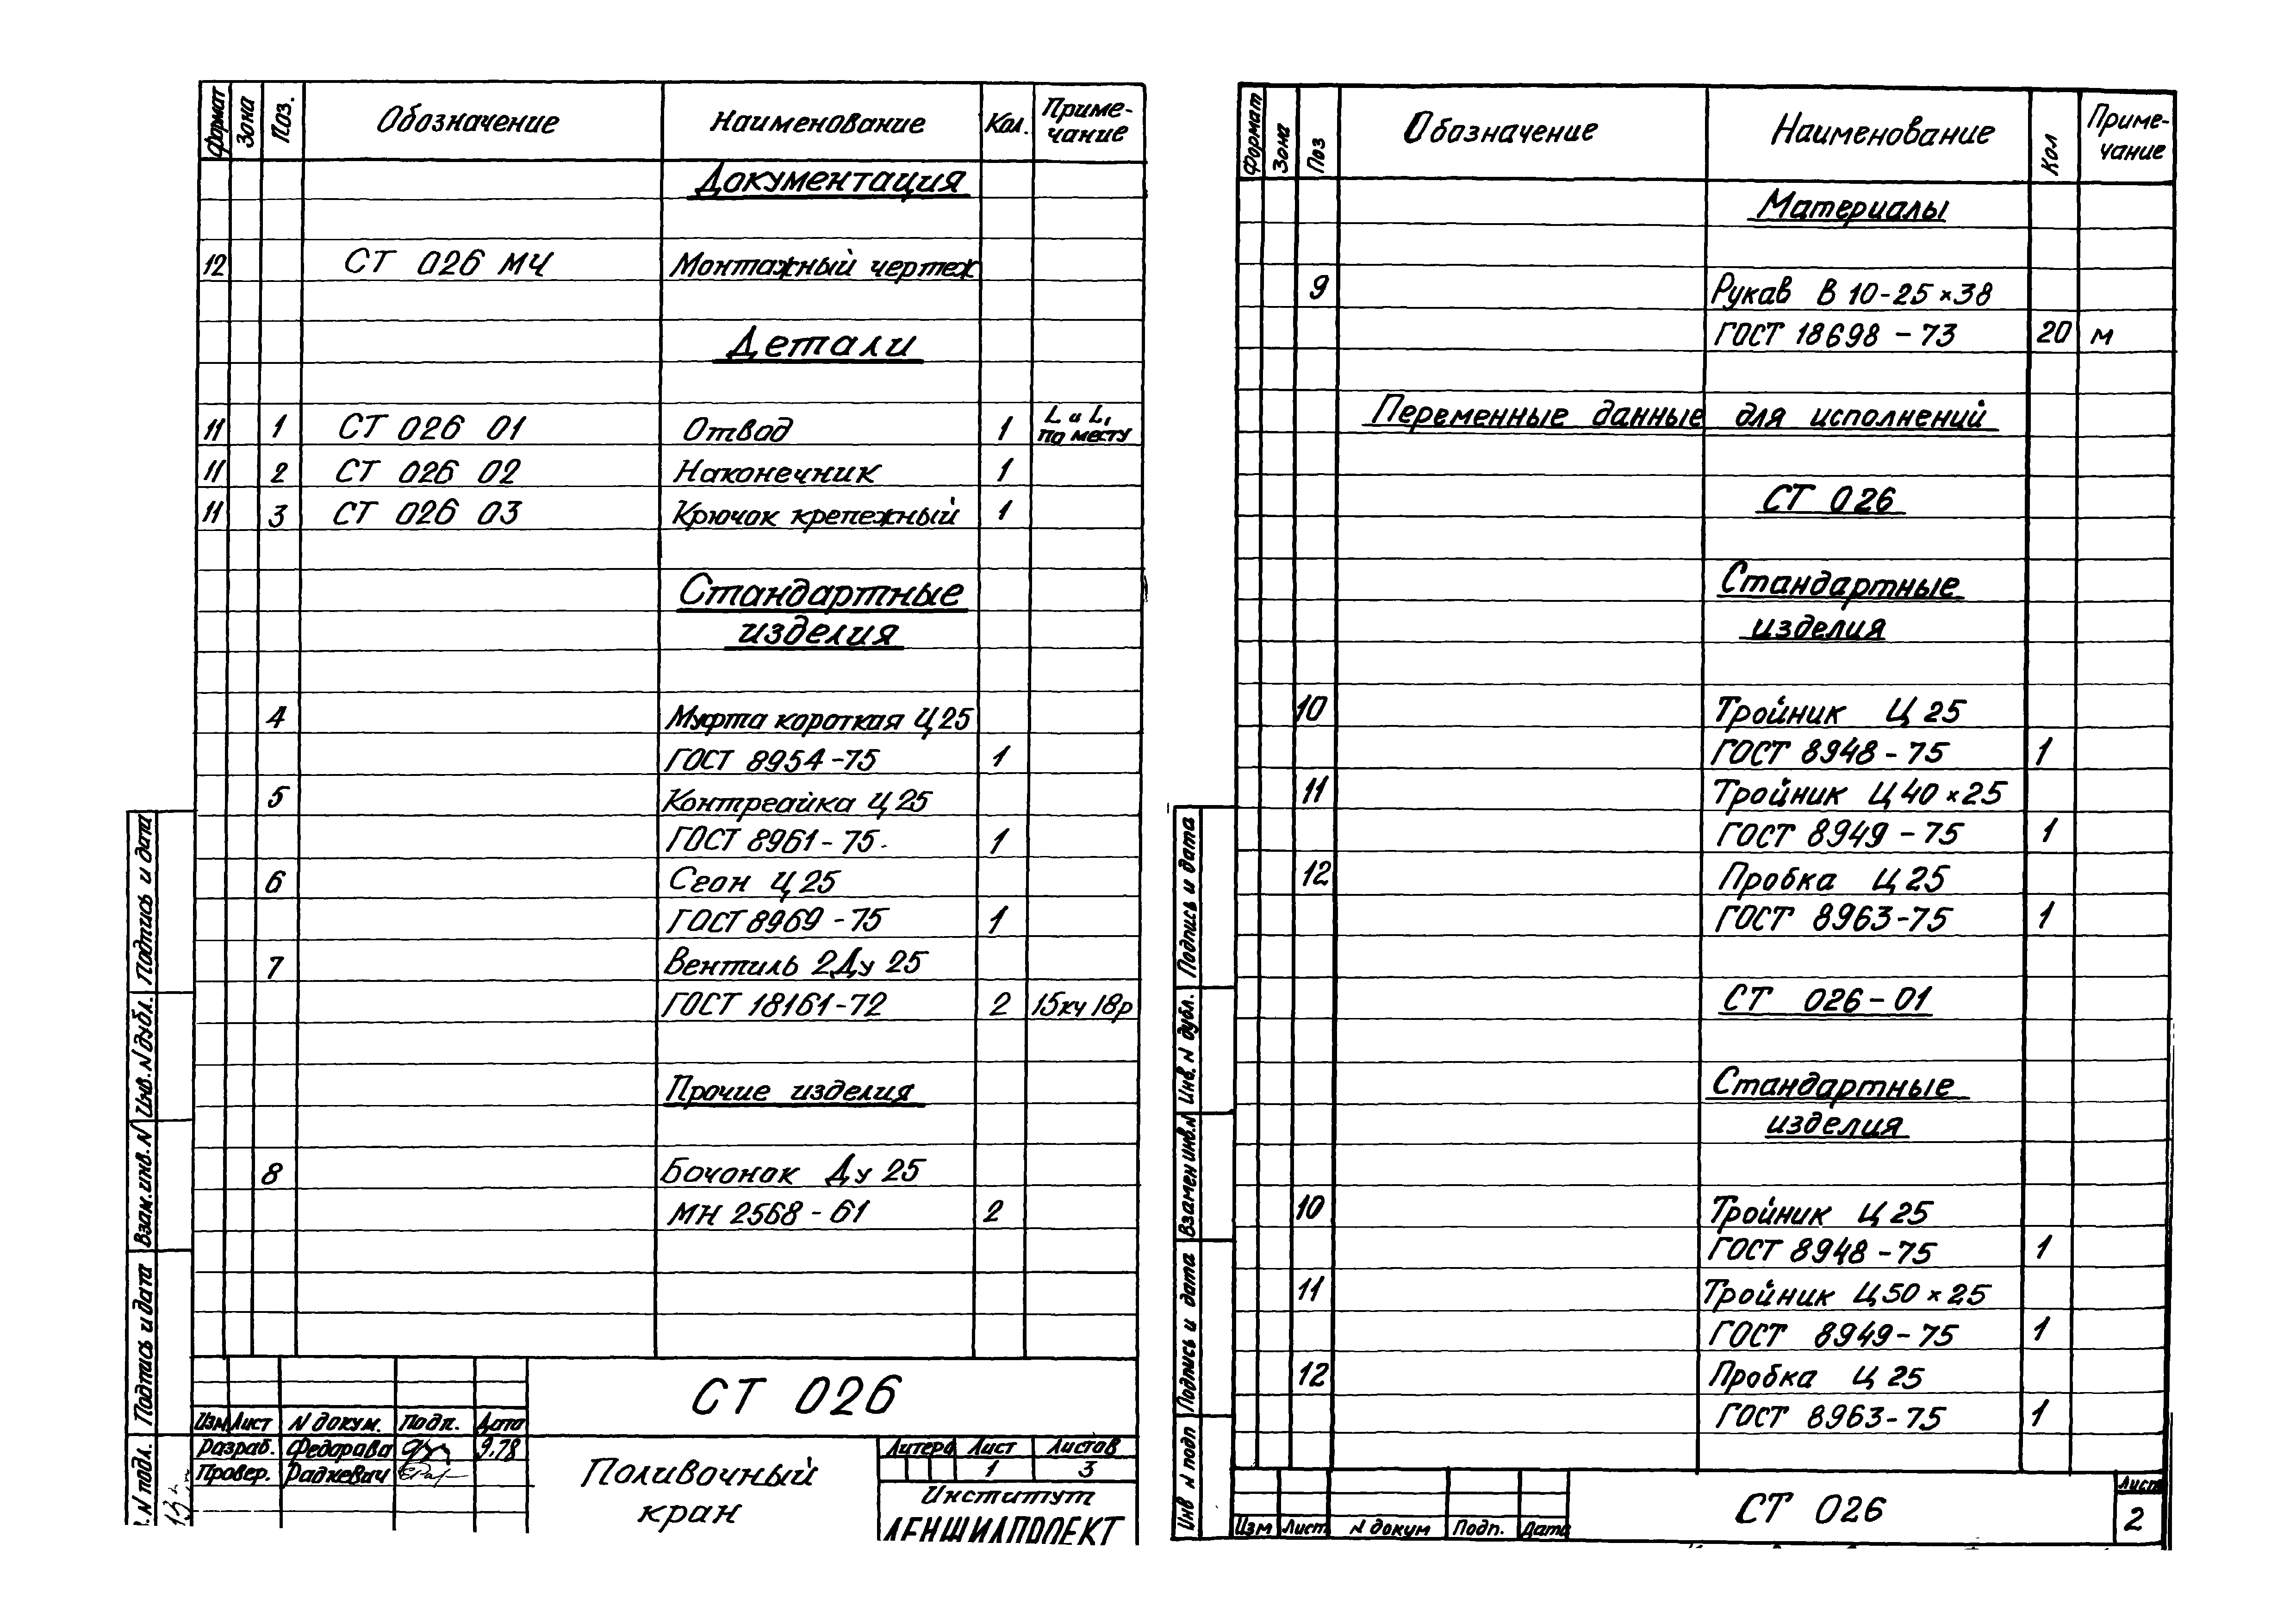 Формат Зона Поз. Обозначение Наименование Кол. Приме-
чание
Документация
12 СТ 026 МЧ Монтажный чертеж
Детали
11 1 СТ 026 01 Отвод 1 L и L1
по месту
11 2 СТ 026 02 Наконечник 1
11 3 СТ 026 03 Крючок крепежный 1
Стандартные
изделия
4 Муфта короткая Ц 25
ГОСТ 8954-75 1
5 Контргайка Ц 25
ГОСТ 8961-75 1
6 Сгон Ц 25
ГОСТ 8969-75 1
7 Вентиль 2Ду 25
ГОСТ 18161-72 2 15кч 18р
Прочие изделия
8 Бочонок Ду 25
МН 2568-61 2
СТ 026
Изм Лист N докум. Подп. Дата
Разраб. Федорова 9.78
Провер. Радкевич
Поливочный
кран
Литера Лист Листов
1 3
Институт
ЛЕНЖИЛПРОЕКТ
Подпись и дата
Инв. N дубл.
Взам. инв. N
Подпись и дата
N подл.
Формат Зона Поз Обозначение Наименование Кол Приме-
чание
Материалы
9 Рукав В 10-25×38
ГОСТ 18698-73 20 м
Переменные данные для исполнений
СТ 026
Стандартные
изделия
10 Тройник Ц 25
ГОСТ 8948-75 1
11 Тройник Ц 40×25
ГОСТ 8949-75 1
12 Пробка Ц 25
ГОСТ 8963-75 1
СТ 026-01
Стандартные
изделия
10 Тройник Ц 25
ГОСТ 8948-75 1
11 Тройник Ц 50×25
ГОСТ 8949-75 1
12 Пробка Ц 25
ГОСТ 8963-75 1
Изм Лист N докум Подп. Дата
СТ 026
Лист
2
Подпись и дата
Инв. N дубл.
Взамен инв. N
Подпись и дата
Инв N подл